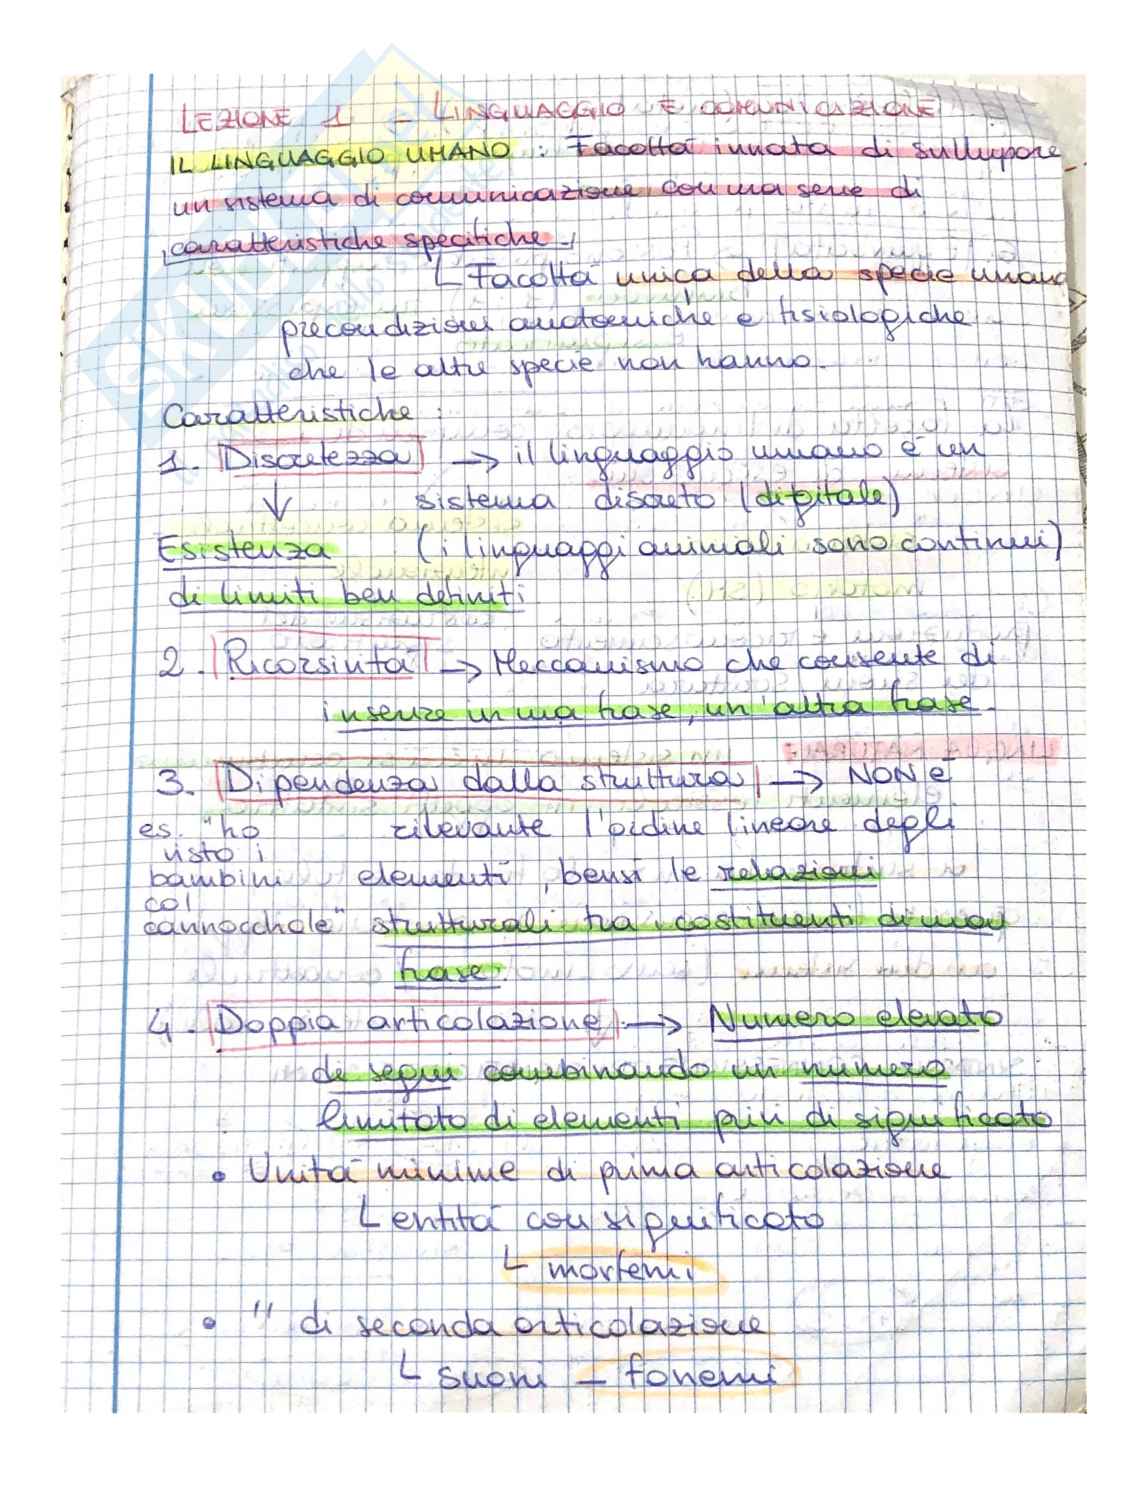 LEZIONE 1 - LINGUAGGIO E COMUNICAZIONE
IL LINGUAGGIO UMANO : Facoltà innata di sviluppare
un sistema di comunicazione con una serie di
caratteristiche specifiche
Facoltà unica della specie umana
precondizioni anatomiche e fisiologiche
che le altre specie non hanno.
Caratteristiche :
1. Discretezza → il linguaggio umano è un
↓ sistema discreto (digitale)
Esistenza (i linguaggi animali sono continui)
di limiti ben definiti
2. Ricorsività → Meccanismo che consente di
inserire in una frase, un'altra frase.
3. Dipendenza dalla struttura → NON è
es. "ho rilevante l'ordine lineare degli
visto i
bambini elementi, bensì le relazioni
col
cannocchiale" strutturali tra i costituenti di una
frase.
4. Doppia articolazione → Numero elevato
di segni combinando un numero
limitato di elementi privi di significato
• Unità minime di prima articolazione
entità con significato
morfemi
• " di seconda articolazione
suoni - fonemi